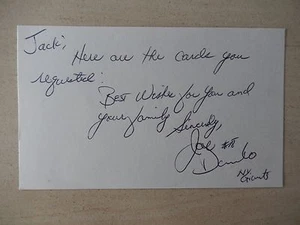 Jack,
Here are the cards you
requested!
Best Wishes for You and
your family
Sincerely,
Joe
NY
Giants